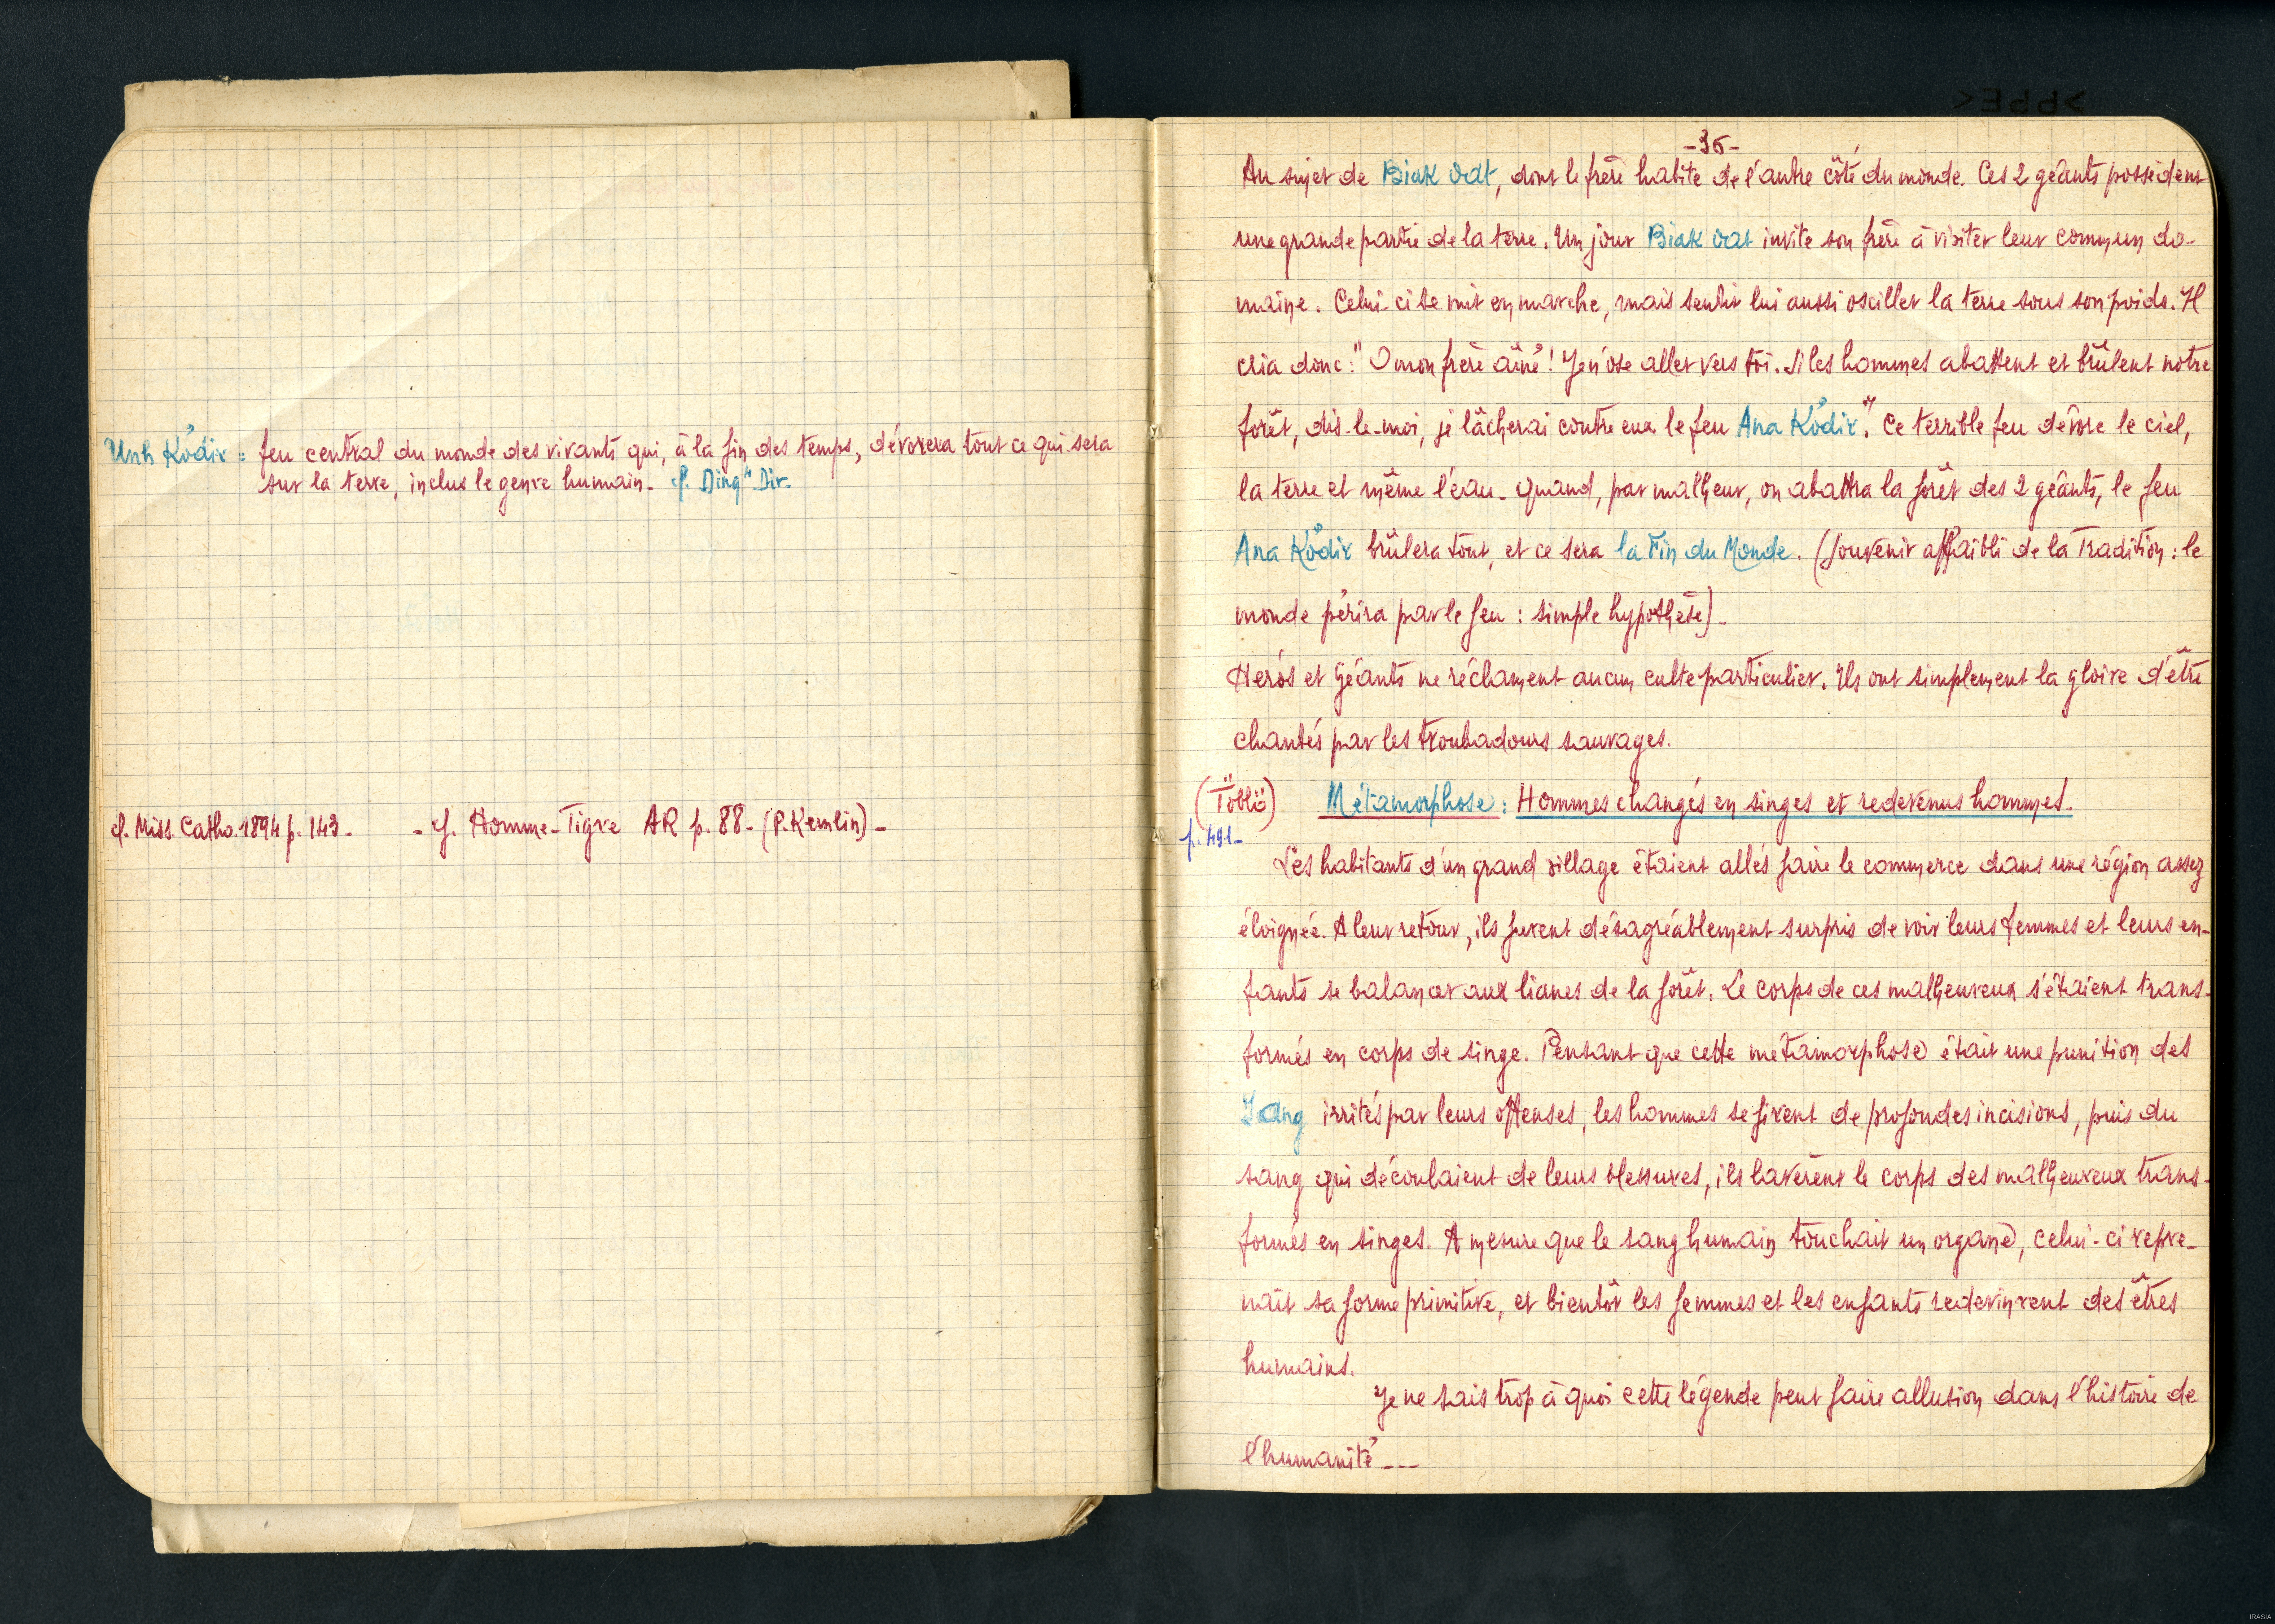 Unh Kơ̆dir = feu central du monde des vivants qui, à la fin des temps, dévorera tout ce qui sera
sur la terre, inclus le genre humain_ cf. Ding" Dir.
cf. Miss. Catho. 1894 p. 143_ _ cf. Homme-Tigre AR p. 88_ (P. Kemlin)_
-35-
Au sujet de Biak dat, dont le frère habite de l'autre côté du monde. Ces 2 géants possèdent
une grande partie de la terre. Un jour Biak dat invite son frère à visiter leur commun do-
maine. Celui-ci se mit en marche, mais sentit lui aussi osciller la terre sous son poids. Il
cria donc: "O mon frère aîné! Je n'ose aller vers toi. Si les hommes abattent et brûlent notre
forêt, dis-le-moi, je lâcherai contre eux le feu Ana Kơ̆dir". Ce terrible feu dévore le ciel,
la terre et même l'eau_ Quand, par malheur, on abattra la forêt des 2 géants, le feu
Ana Kơ̆dir brûlera tout, et ce sera la Fin du Monde. (Souvenir affaibli de la Tradition: le
monde périra par le feu : simple hypothèse)_
Héros et Géants ne réclament aucun culte particulier. Ils ont simplement la gloire d'être
chantés par les troubadours sauvages.
(Töblö) Métamorphose: Hommes changés en singes et redevenus hommes.
p. 491_
Les habitants d'un grand village étaient allés faire le commerce dans une région assez
éloignée. A leur retour, ils furent désagréablement surpris de voir leurs femmes et leurs en-
fants se balancer aux lianes de la forêt. Le corps de ces malheureux s'étaient trans-
formés en corps de singe. Pensant que cette métamorphose était une punition des
Iang irrités par leurs offenses, les hommes se firent de profondes incisions, puis du
sang qui découlaient de leurs blessures, ils lavèrent le corps des malheureux trans-
formés en singes. A mesure que le sang humain touchait un organe, celui-ci repre-
nait sa forme primitive, et bientôt les femmes et les enfants redevinrent des êtres
humains.
Je ne sais trop à quoi cette légende peut faire allusion dans l'histoire de
l'humanité ---
IRASIA